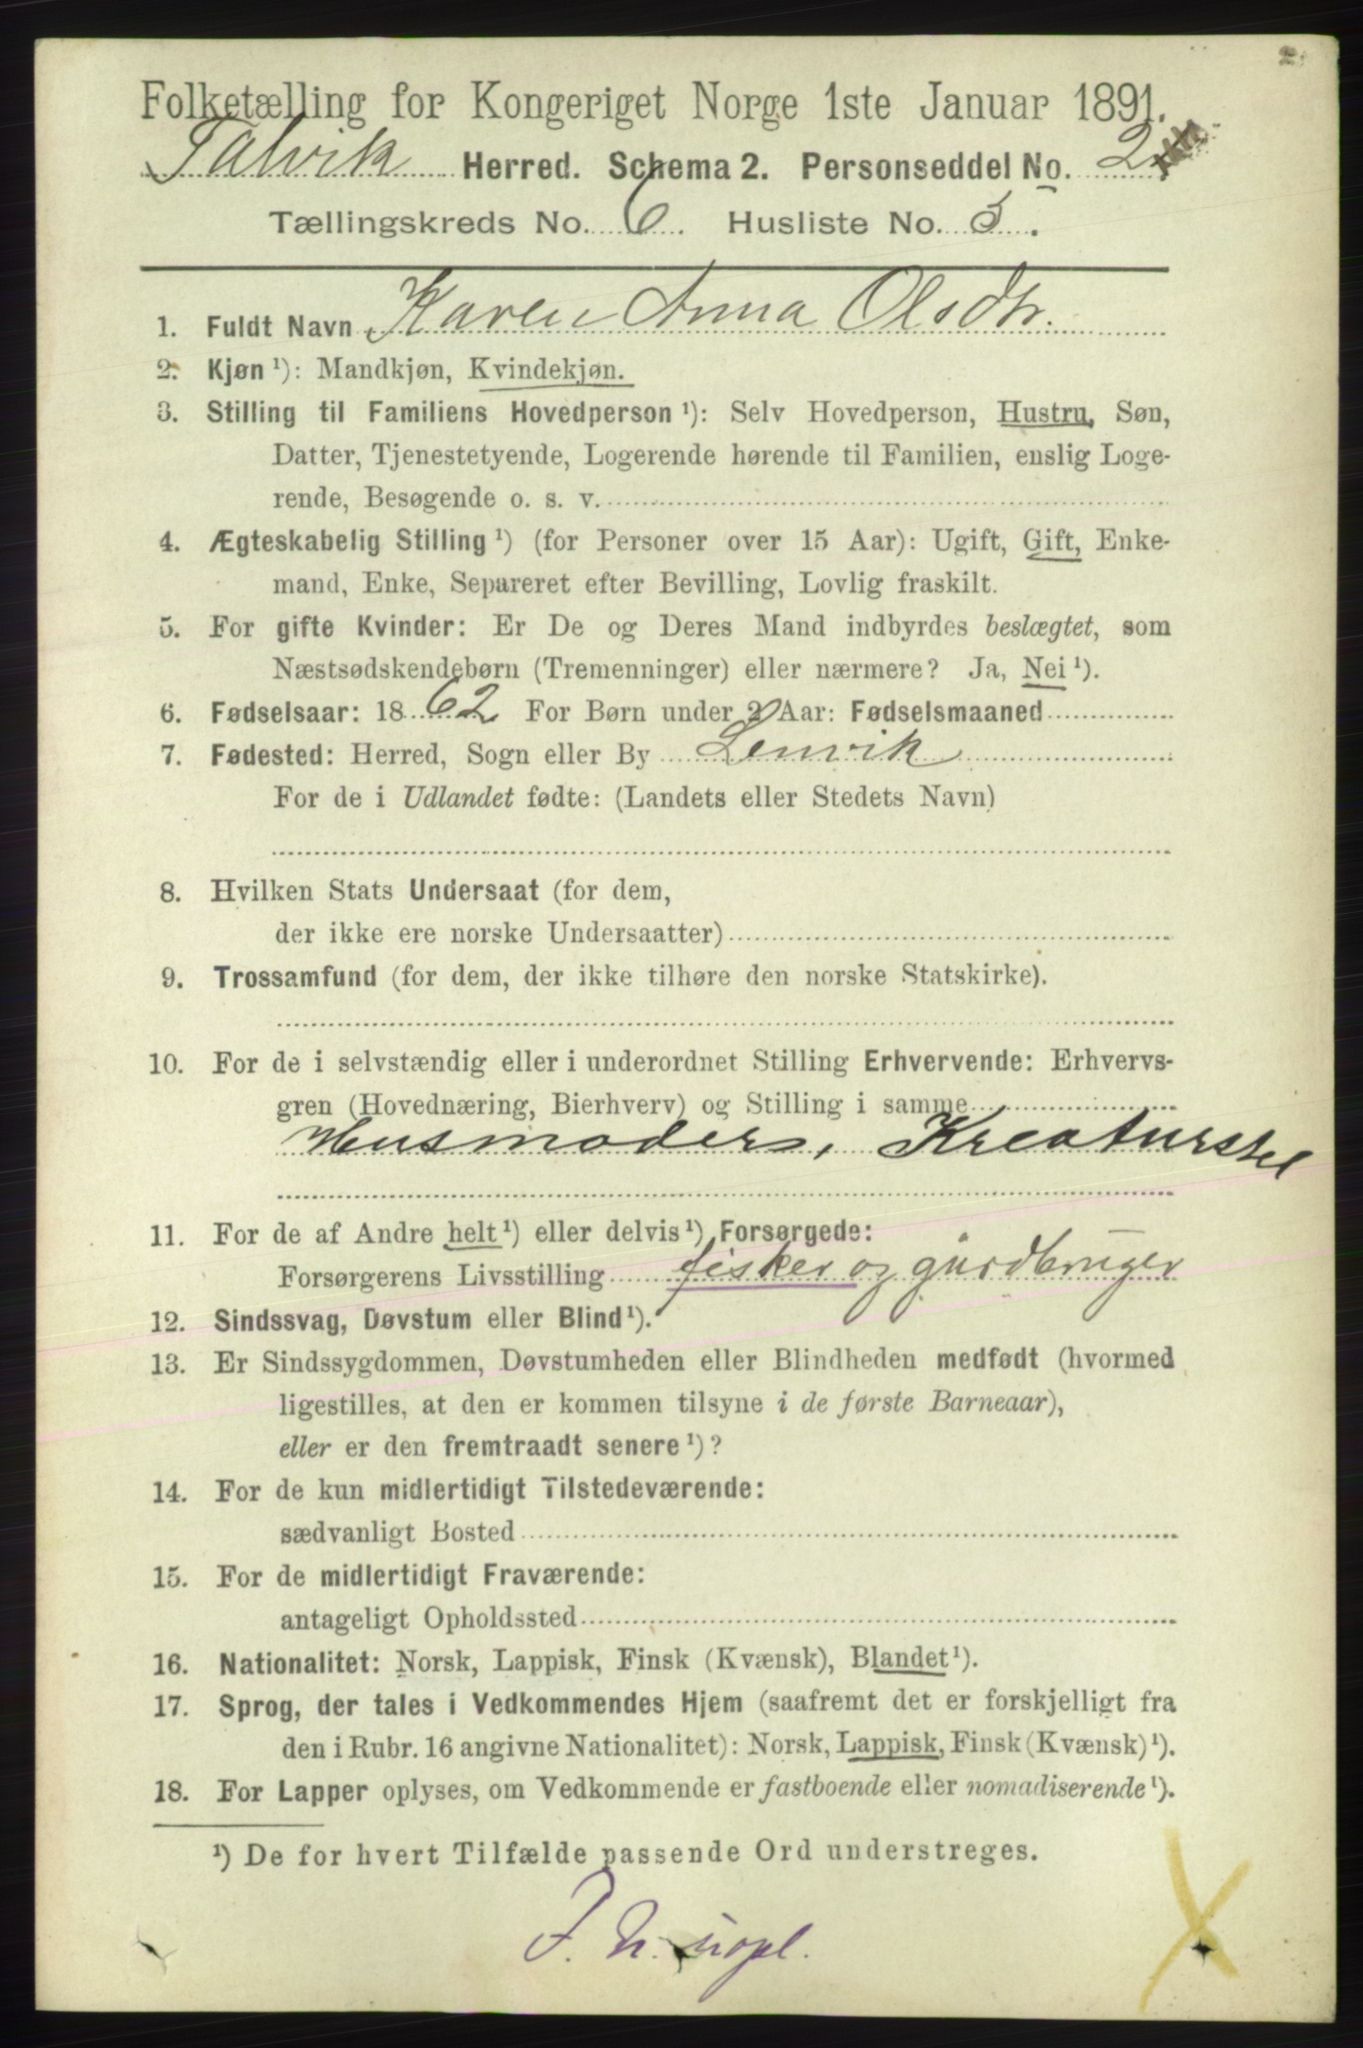 Folketælling for Kongeriget Norge 1ste Januar 1891.
Talvik Herred. Schema 2. Personseddel No. 2
Tællingskreds No. 6. Husliste No. 5.
1. Fuldt Navn Karen Anna Olsdtr.
2. Kjøn ¹): Mandkjøn, Kvindekjøn.
3. Stilling til Familiens Hovedperson ¹): Selv Hovedperson, Hustru, Søn,
Datter, Tjenestetyende, Logerende hørende til Familien, enslig Loge-
rende, Besøgende o. s. v.
4. Ægteskabelig Stilling ¹) (for Personer over 15 Aar): Ugift, Gift, Enke-
mand, Enke, Separeret efter Bevilling, Lovlig fraskilt.
5. For gifte Kvinder: Er De og Deres Mand indbyrdes beslægtet, som
Næstsødskendebørn (Tremenninger) eller nærmere? Ja, Nei ¹).
6. Fødselsaar: 1862 For Børn under 2 Aar: Fødselsmaaned
7. Fødested: Herred, Sogn eller By Lenvik
For de i Udlandet fødte: (Landets eller Stedets Navn)
8. Hvilken Stats Undersaat (for dem,
der ikke ere norske Undersaatter)
9. Trossamfund (for dem, der ikke tilhøre den norske Statskirke).
10. For de i selvstændig eller i underordnet Stilling Erhvervende: Erhvervs-
gren (Hovednæring, Bierhverv) og Stilling i samme
Husmoder, Kreaturstel
11. For de af Andre helt ¹) eller delvis ¹) Forsørgede:
Forsørgerens Livsstilling fisker og gurdbruger
12. Sindssvag, Døvstum eller Blind ¹).
13. Er Sindssygdommen, Døvstumheden eller Blindheden medfødt (hvormed
ligestilles, at den er kommen tilsyne i de første Barneaar),
eller er den fremtraadt senere ¹)?
14. For de kun midlertidigt Tilstedeværende:
sædvanligt Bosted
15. For de midlertidigt Fraværende:
antageligt Opholdssted
16. Nationalitet: Norsk, Lappisk, Finsk (Kvænsk), Blandet ¹).
17. Sprog, der tales i Vedkommendes Hjem (saafremt det er forskjelligt fra
den i Rubr. 16 angivne Nationalitet): Norsk, Lappisk, Finsk (Kvænsk) ¹).
18. For Lapper oplyses, om Vedkommende er fastboende eller nomadiserende ¹).
¹) De for hvert Tilfælde passende Ord understreges.